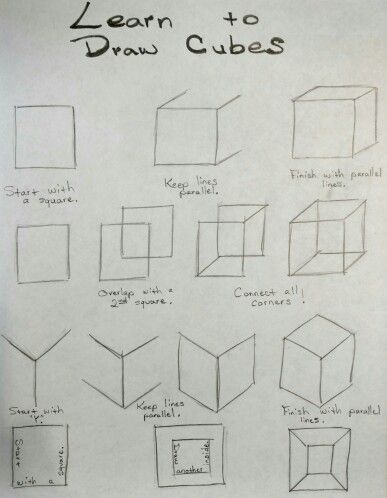 Learn to
Draw Cubes
Start with
a square.
Keep lines
parallel.
Finish with parallel
lines.
Overlap with a
2nd square.
Connect all
corners!
Start with
"Y".
Keep lines
parallel.
Finish with parallel
lines.
Start
with a
square.
Draw
another
inside